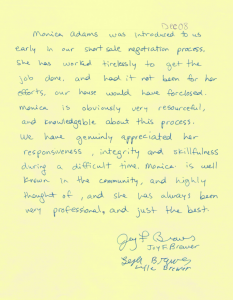 Dec 08
Monica Adams was introduced to us
early in our short sale negotiation process.
She has worked tirelessly to get the
job done, and had it not been for her
efforts, our house would have foreclosed.
Monica is obviously very resourceful,
and knowledgable about this process.
We have genuinely appreciated her
responsiveness, integrity and skillfulness
during a difficult time. Monica is well
known in the community, and highly
thought of, and she has always been
very professional, and just the best.
Joy F Brewer
Joy F. Brewer
Lyle Brewer
Lyle Brewer